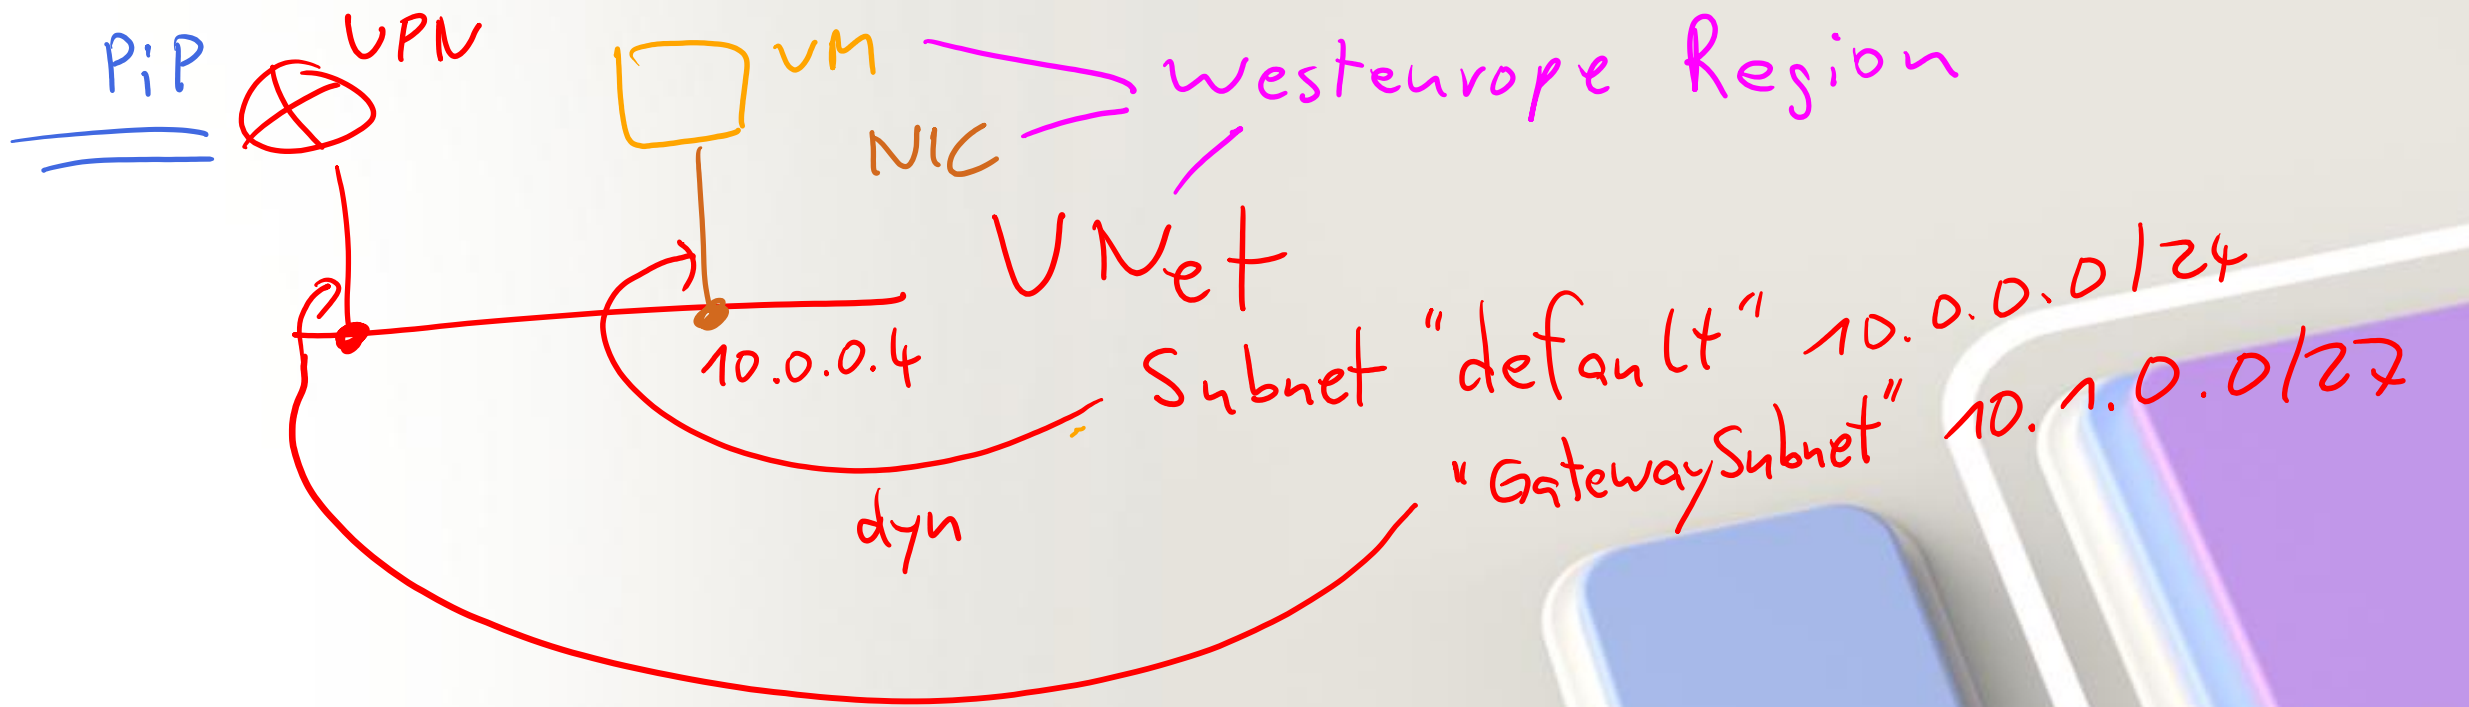 PiP
VPN
VM
Westeurope Region
NIC
VNet
10.0.0.4
Subnet "default" 10.0.0.0/24
"GatewaySubnet" 10.1.0.0/27
dyn